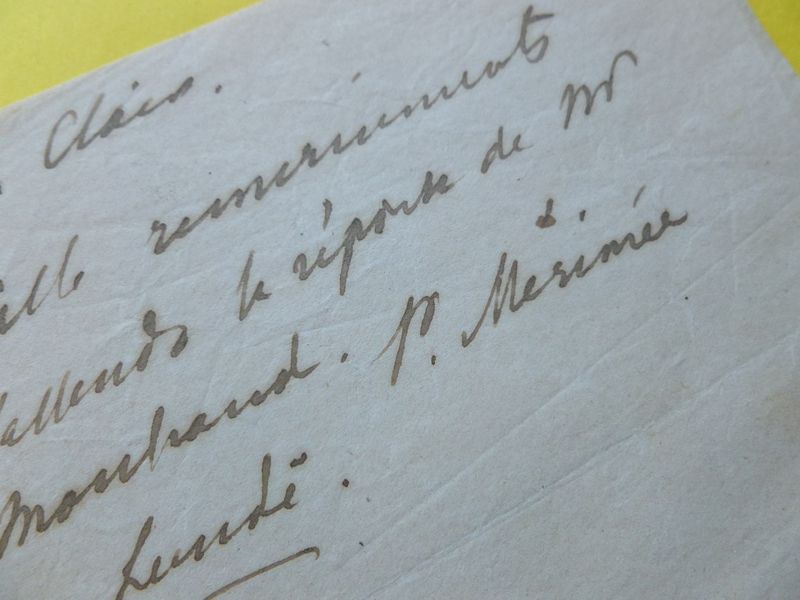 Clair.
ille remerciements
J'attends la réponse de Mr
Montrand. Pr. Mérimée
Lundi.